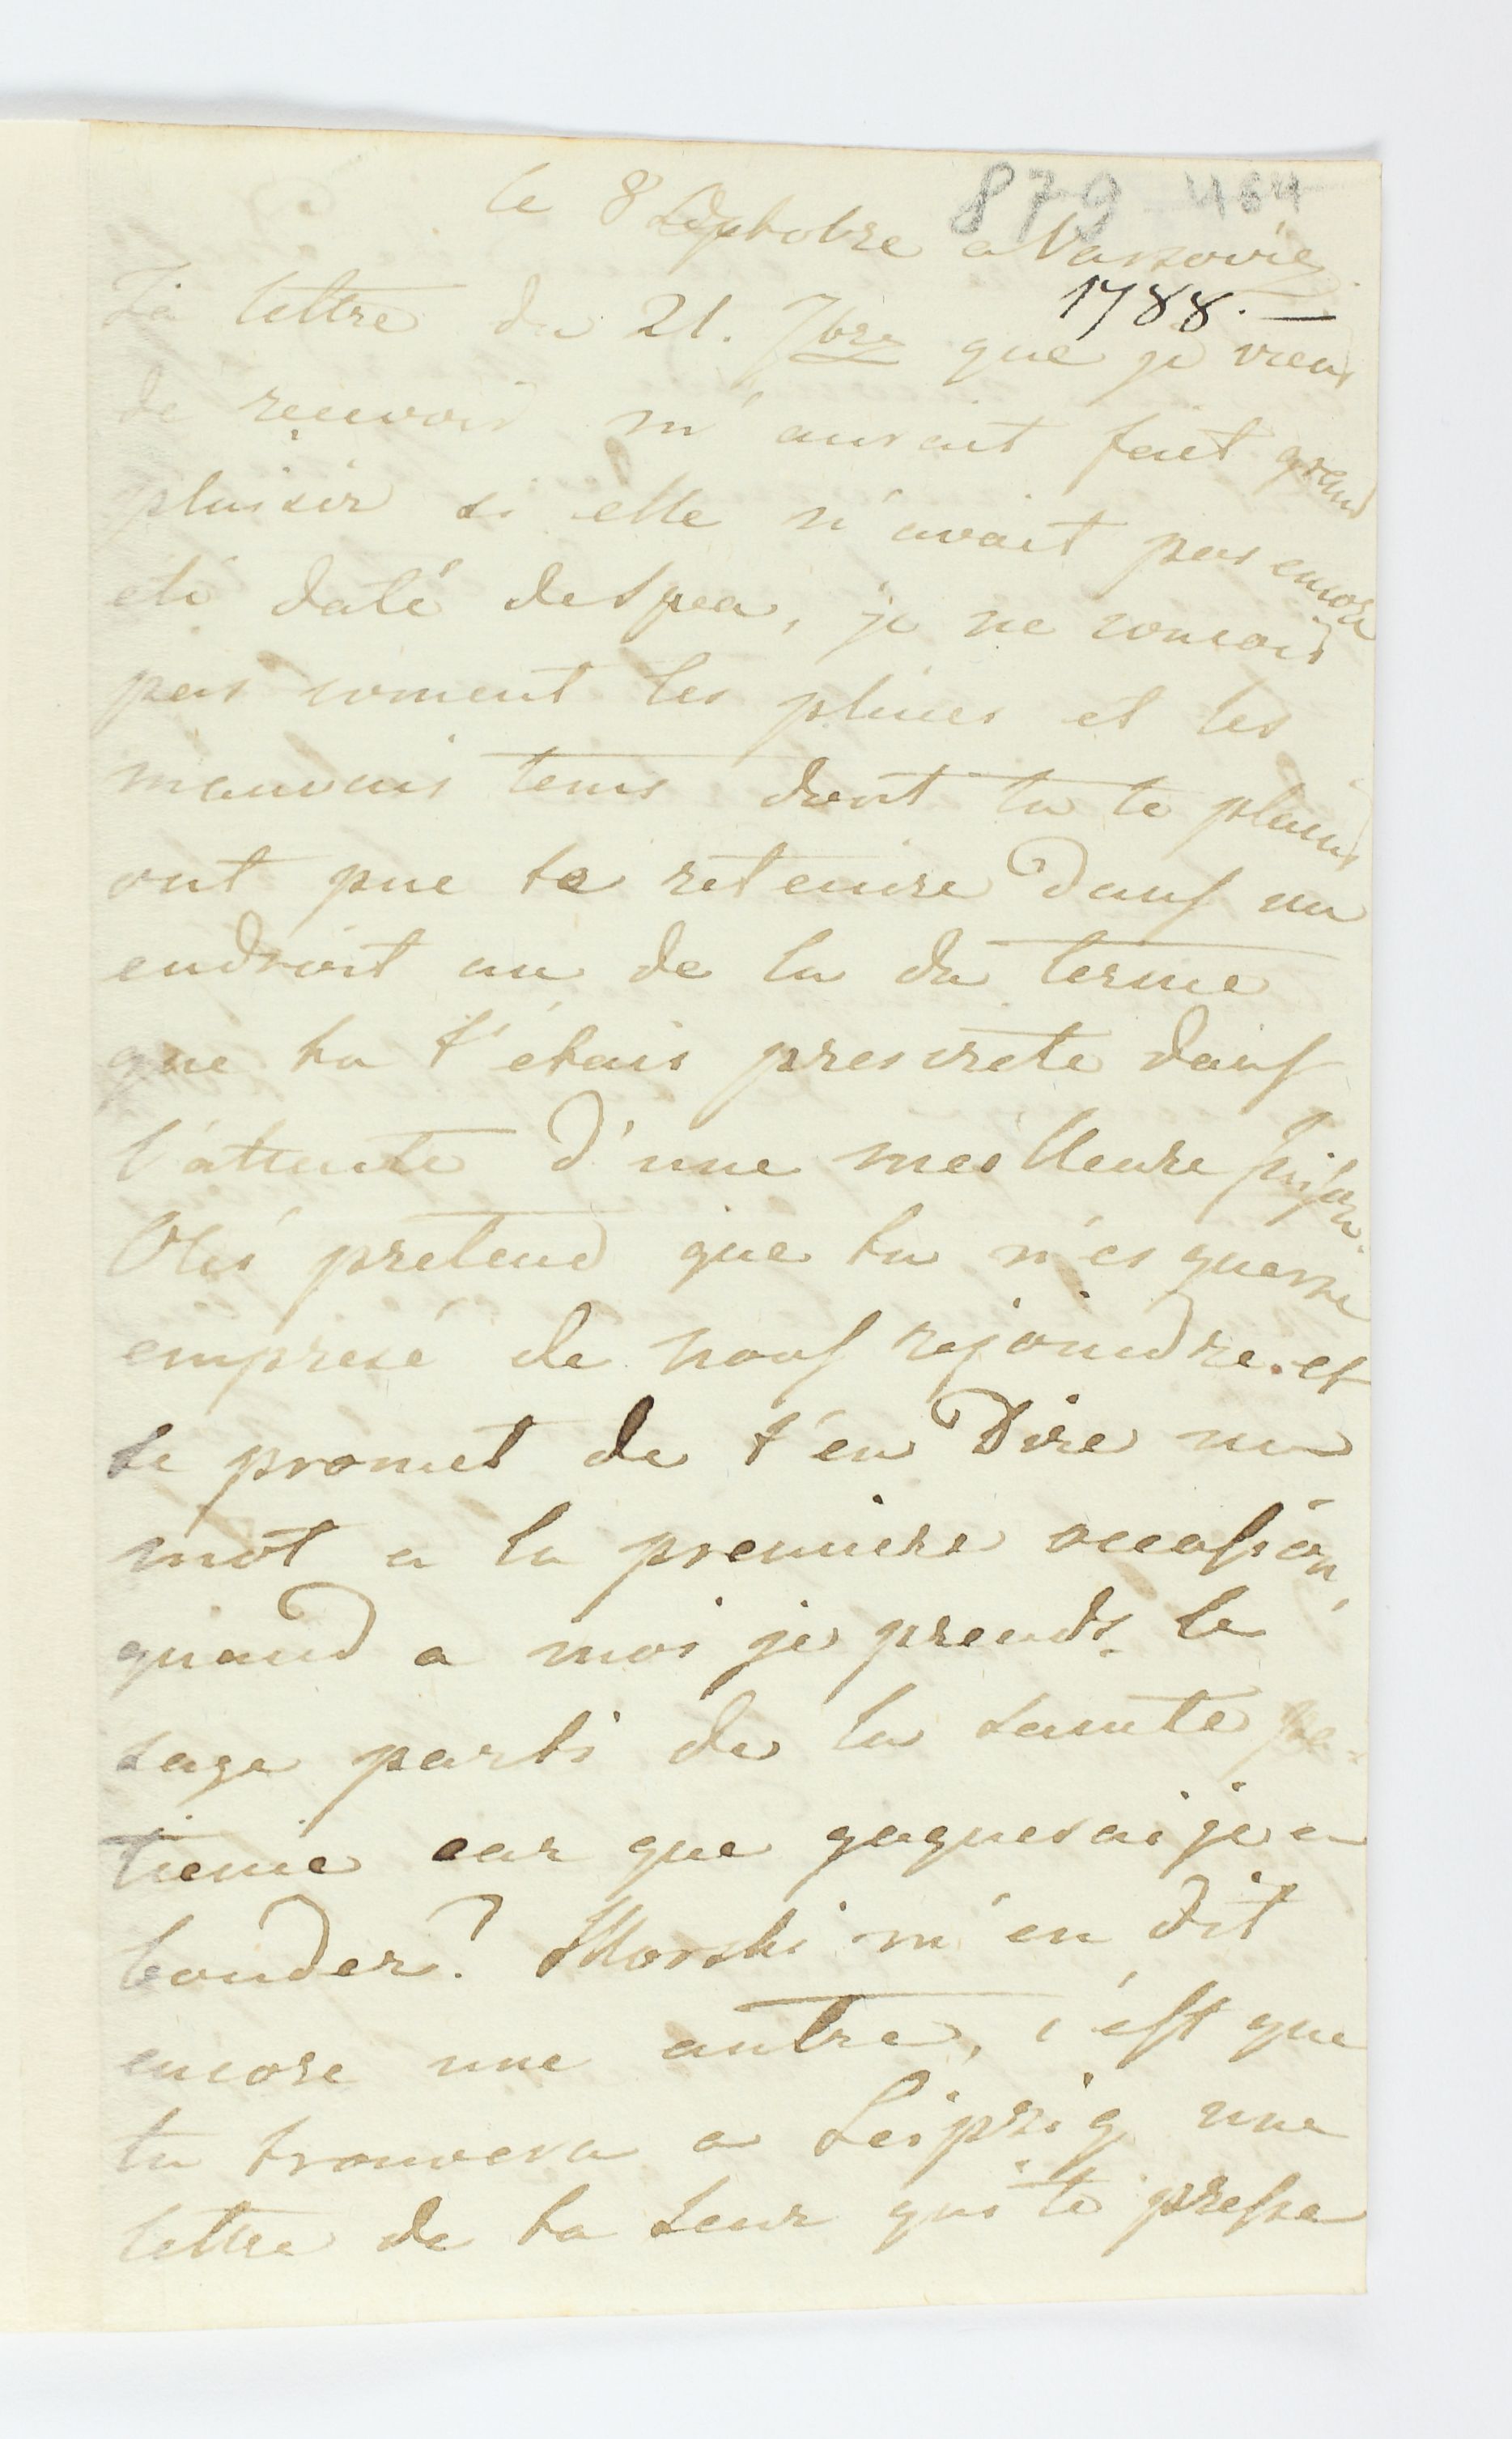 879 484
le 8 Octobre a Varsovie
1788. —
Ta lettre du 21. 7bre que je viens
de reçevoir m'aurait fait grand
plaisir si elle n'avait pas encore
été daté de Spea, je ne concois
pas coment les pluies et les
mauvais tems dont tu te plains
ont pue te retenire dans un
endroit au de la du terme
que tu t'étais prescrete dans
l'attente d'une meilleure
pretend que tu n'es guerre
empresé de nous rejoindre. et
te promet de t'en Dire un
mot a la premiere occasion,
quand a moi je prends le
sage parti de la sainte pa-
tience car que gagnerai je a
bouder? Morski m'en dit
encore une autre, c'est que
tu trouvera a Leipzig une
lettre de ta seur qui te presse